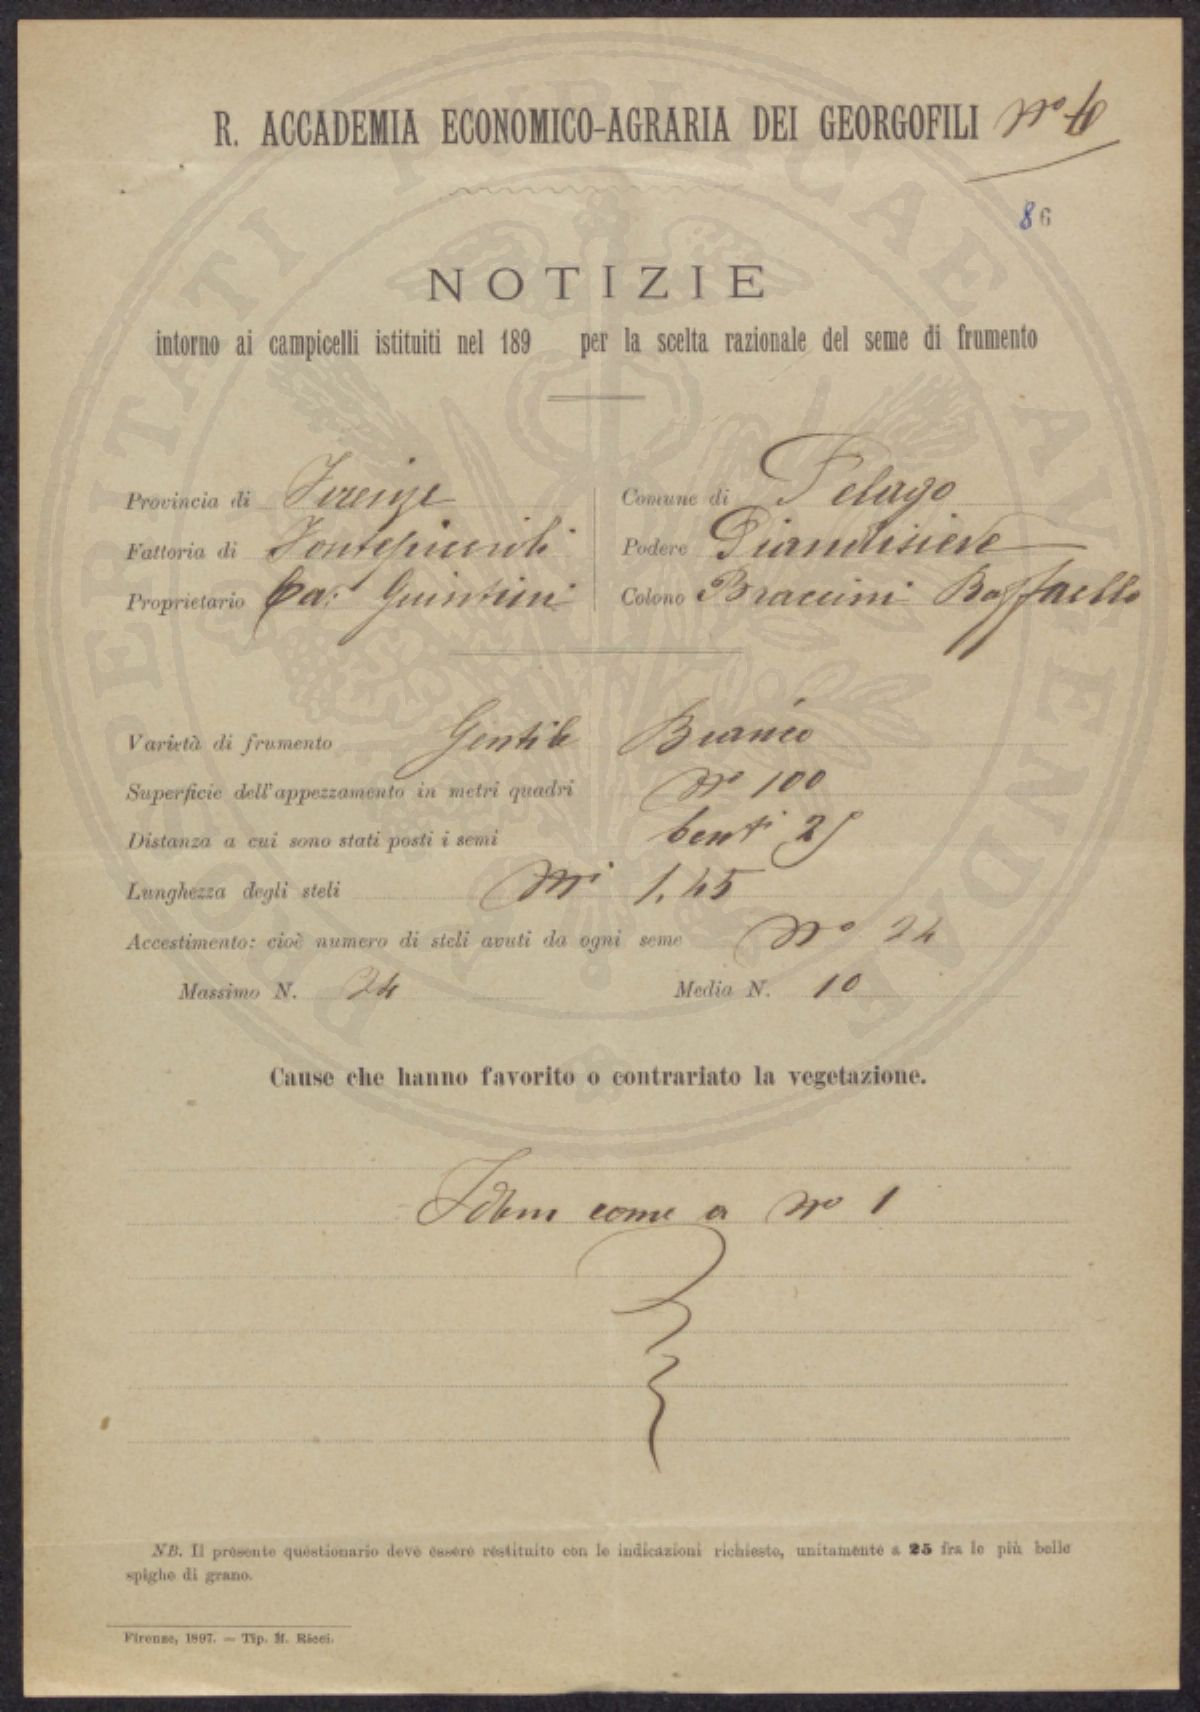 R. ACCADEMIA ECONOMICO-AGRARIA DEI GEORGOFILI Nº 6
86
NOTIZIE
intorno ai campicelli istituiti nel 189 per la scelta razionale del seme di frumento
Provincia di Firenze
Comune di Pelago
Fattoria di
Podere Piandisieve
Proprietario Quintini
Colono Braccini Raffaello
Varietà di frumento Gentil Bianco
Superficie dell'appezzamento in metri quadri Nº 100
Distanza a cui sono stati posti i semi Centi 25
Lunghezza degli steli Mi 1,45
Accestimento: cioè numero di steli avuti da ogni seme Nº 24
Massimo N. 24 Media N. 10
Cause che hanno favorito o contrariato la vegetazione.
Idem come a Nº 1
NB. Il presente questionario deve essere restituito con le indicazioni richieste, unitamente a 25 fra le più belle
spighe di grano.
Firenze, 1897. — Tip. M. Ricci.
PROSPERITATI PUBLICAE AUGENDAE